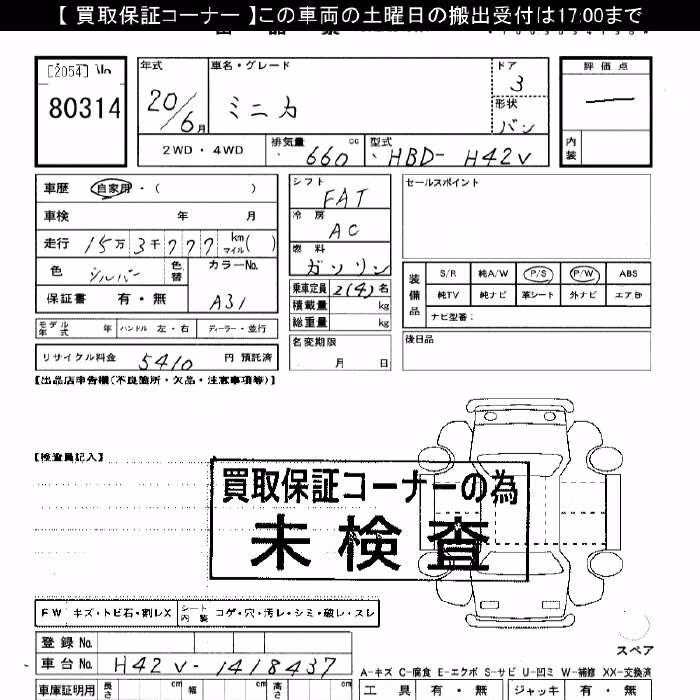 【 買取保証コーナー 】この車両の土曜日の搬出受付は17:00まで
[2054] No
80314
年式 車名・グレード ドア 評価点
20/6月 ミニカ 3
形状 バン
2WD・4WD 排気量 660 cc 型式 HBD- H42V 内装
車歴 自家用・( )
車検 年 月
走行 15万3千777 km マイル( )
色 シルバー 色替 カラーNo. A31
保証書 有・無
シフト FAT
冷房 AC
燃料 ガソリン
乗車定員 2(4)名
積載量 kg
総重量 kg
セールスポイント
装備品 S/R 純A/W P/S P/W ABS
純TV 純ナビ 革シート 外ナビ エアB
ナビ型番:
モデル年式 年 ハンドル 左・右 ディーラー・並行
名変期限 月 日
後日品
リサイクル料金 5410 円 預託済
【出品店申告欄(不良箇所・欠品・注意事項等)】
【検査員記入】
買取保証コーナーの為
未検査
FW キズ・トビ石・割レX シート内装 コゲ・穴・汚レ・シミ・破レ・スレ
スペア
登録 No.
車台No. H42V-1418437
A-キズ C-腐食 E-エクボ S-サビ U-凹ミ W-補修 XX-交換済
車庫証明用 長さ cm 幅 cm 高さ cm 工具 有・無 ジャッキ 有・無